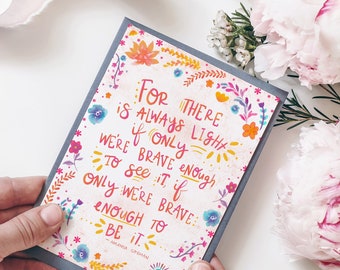 FOR THERE
IS ALWAYS LIGHT,
IF ONLY
WE'RE BRAVE ENOUGH
TO SEE IT, IF
ONLY WE'RE BRAVE
ENOUGH TO
BE IT.
- AMANDA GORMAN